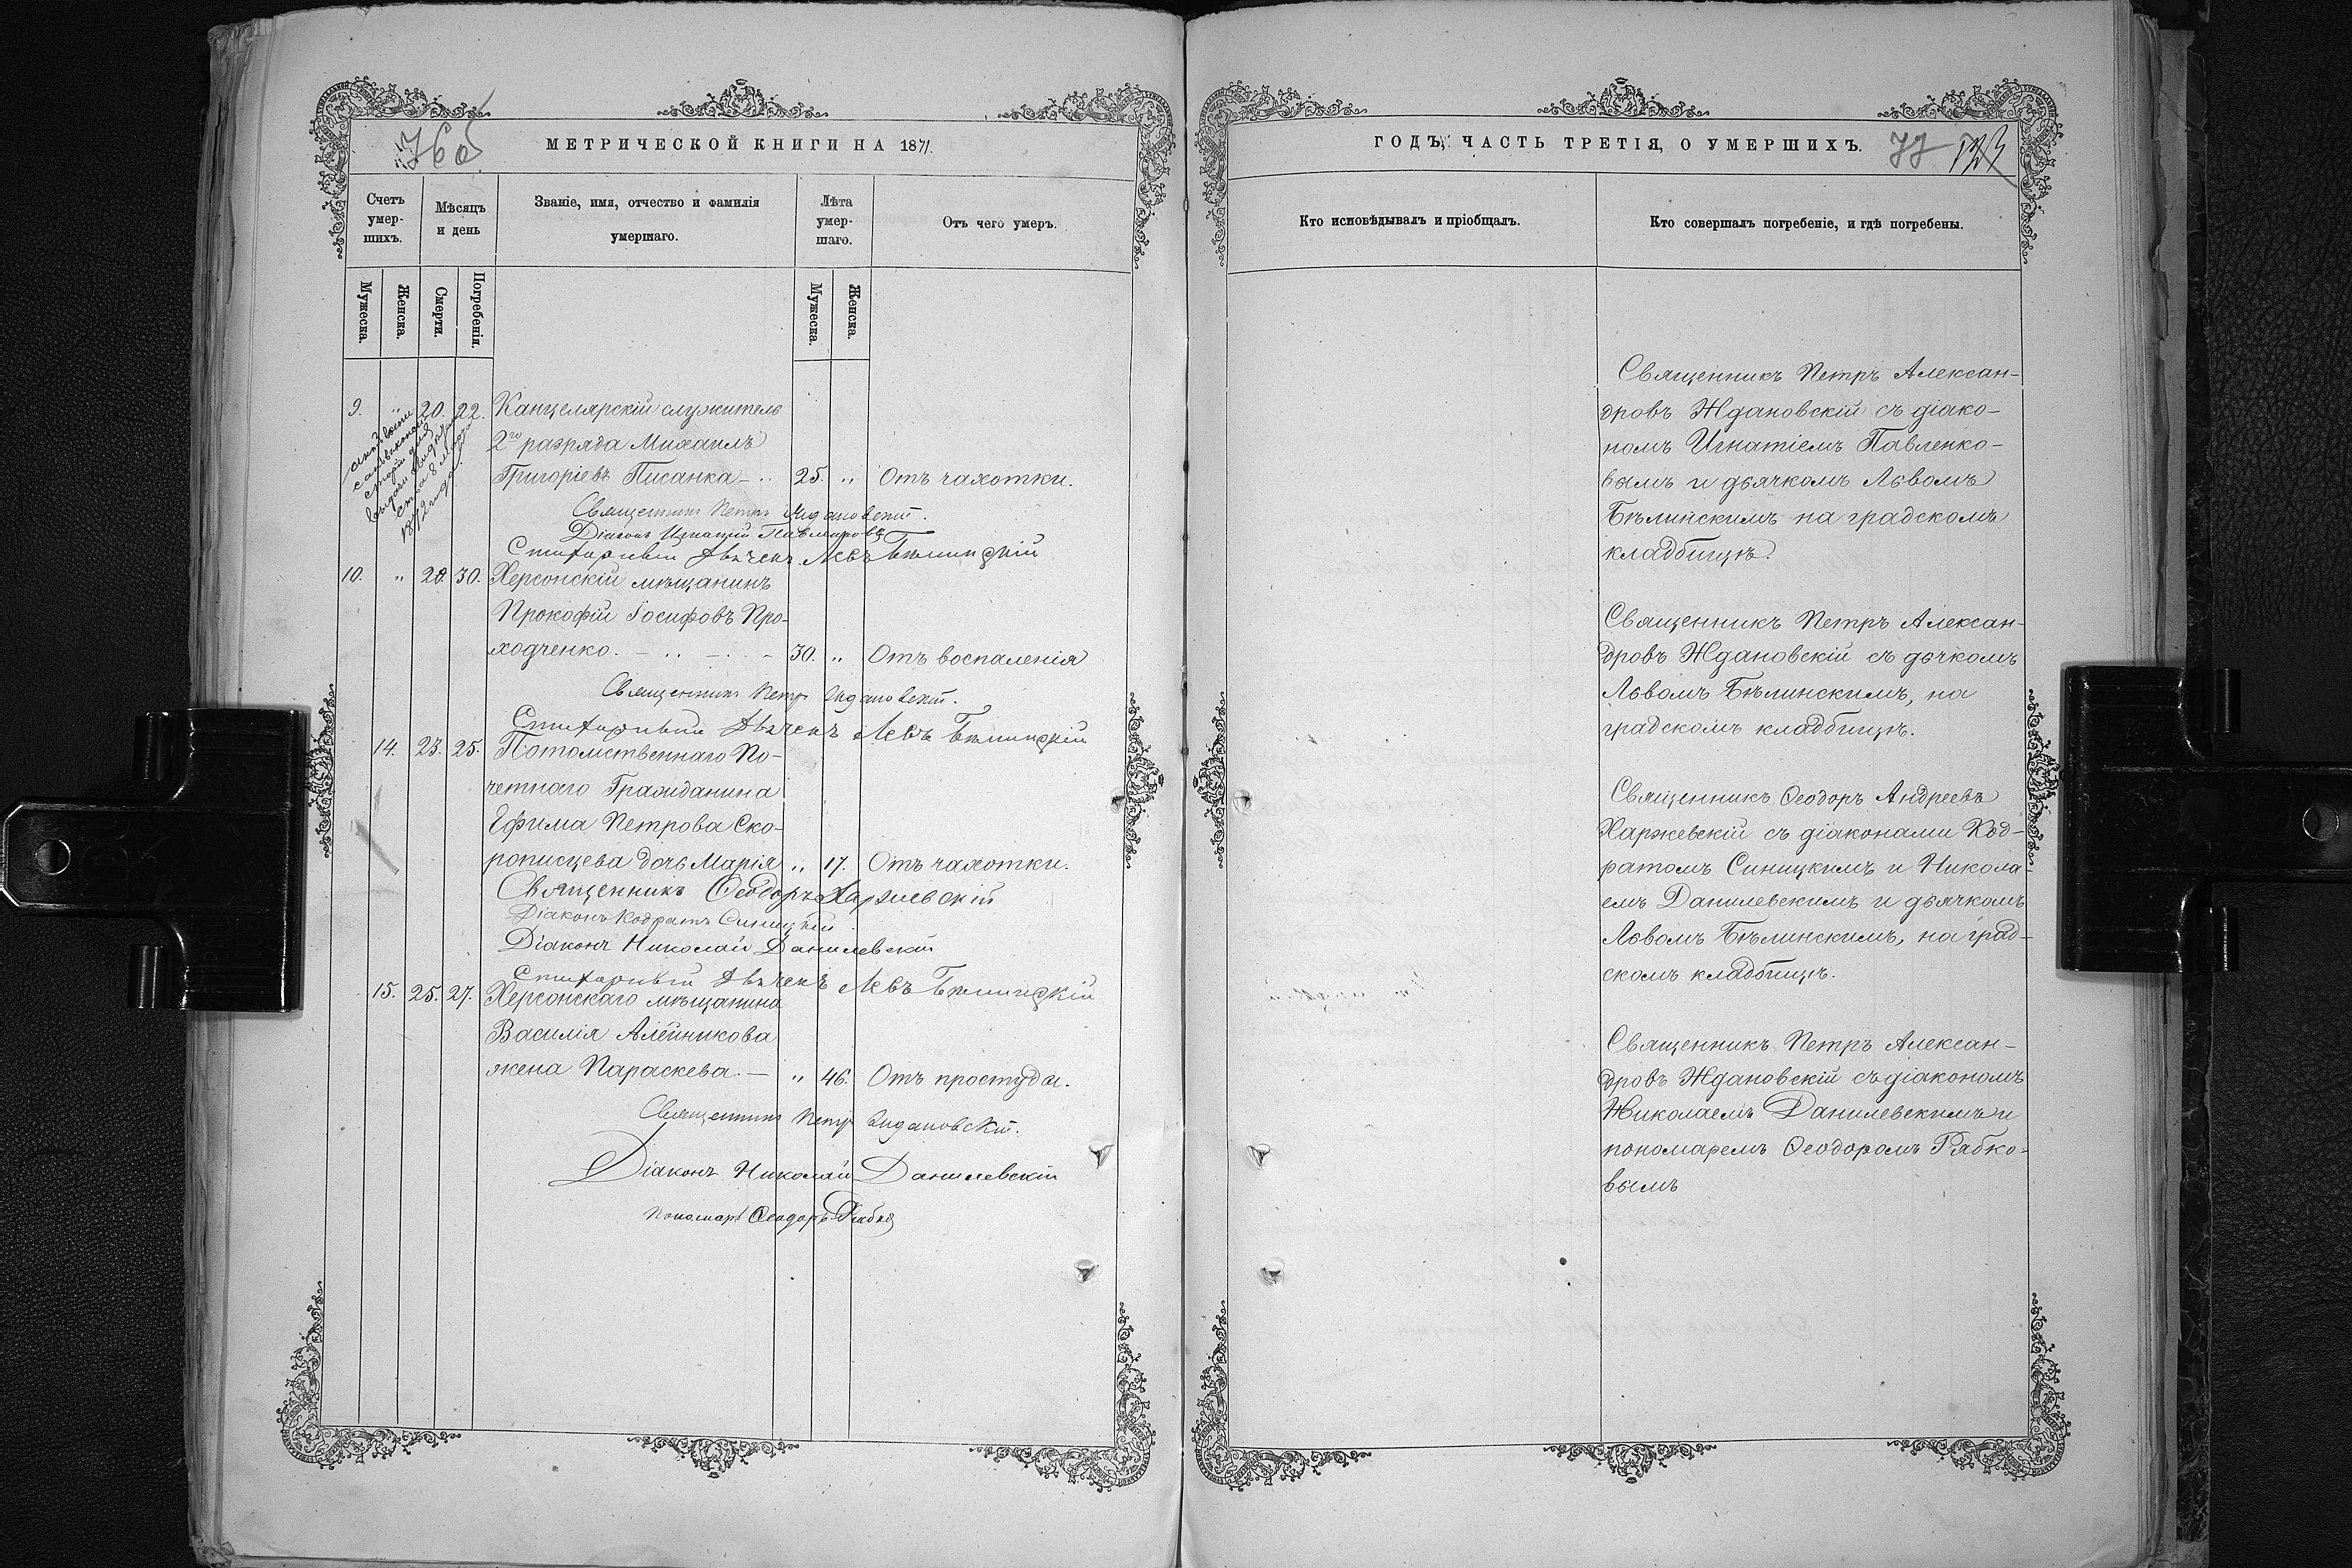 76об
МЕТРИЧЕСКОЙ КНИГИ НА 1871.
Счетъ умер-шихъ.
Мѣсяцъ и день
Званіе, имя, отчество и фамилія умершаго.
Лѣта умер-шаго.
Отъ чего умеръ.
Мужеска.
Женска.
Смерти.
Погребенія.
Мужеска.
Женска.
9. „ 20. 22. Канцелярскій служитель
2го разряда Михаилъ
Григоріевъ Писанка 25. „ Отъ чахотки.
8 1872 года.
Священникъ Петръ Ждановскій.
Діаконъ Игнатій Павленковъ
Стихарный Дьячекъ Левъ Бѣлинскій
10. „ 28. 30. Херсонскій мѣщанинъ
Прокофій Іосифовъ Про-
ходченко. 30. „ Отъ воспаленія
Священникъ Петръ Ждановскій.
Стихарный Дьячекъ Левъ Бѣлинскій
14. 23. 25. Потомственнаго По-
четнаго Гражданина
Ефима Петрова Ско-
рописцева дочь Марія „ 17. Отъ чахотки.
Священникъ Ѳеодоръ Харжевскій
Діаконъ Кодратъ Синицкій
Діаконъ Николай Данилевскій
Стихарный Дьячекъ Левъ Бѣлинскій
15. 25. 27. Херсонскаго мѣщанина
Василія Алейникова
жена Параскева. „ 46. Отъ простуды.
Священникъ Петръ Ждановскій.
Діаконъ Николай Данилевскій
пономарь Ѳеодоръ Рябко
ГОДЪ, ЧАСТЬ ТРЕТІЯ, О УМЕРШИХЪ. 77
Кто исповѣдывалъ и пріобщалъ.
Кто совершалъ погребеніе, и гдѣ погребены.
Священникъ Петръ Алексан-
дровъ Ждановскій съ діако-
номъ Игнатіемъ Павленко-
вымъ и дьячкомъ Львомъ
Бѣлинскимъ на градскомъ
кладбищѣ.
Священникъ Петръ Алексан-
дровъ Ждановскій съ дьчкомъ
Львомъ Бѣлинскимъ, на
градскомъ кладбищѣ.
Священникъ Ѳеодоръ Андреевъ
Харжевскій съ діаконами Код-
ратомъ Синицкимъ и Никола-
емъ Данилевскимъ и дьячкомъ
Львомъ Бѣлинскимъ, на град-
скомъ кладбищѣ.
Священникъ Петръ Алексан-
дровъ Ждановскій съ діакономъ
Николаемъ Данилевскимъ и
пономаремъ Ѳеодоромъ Рябко-
вымъ